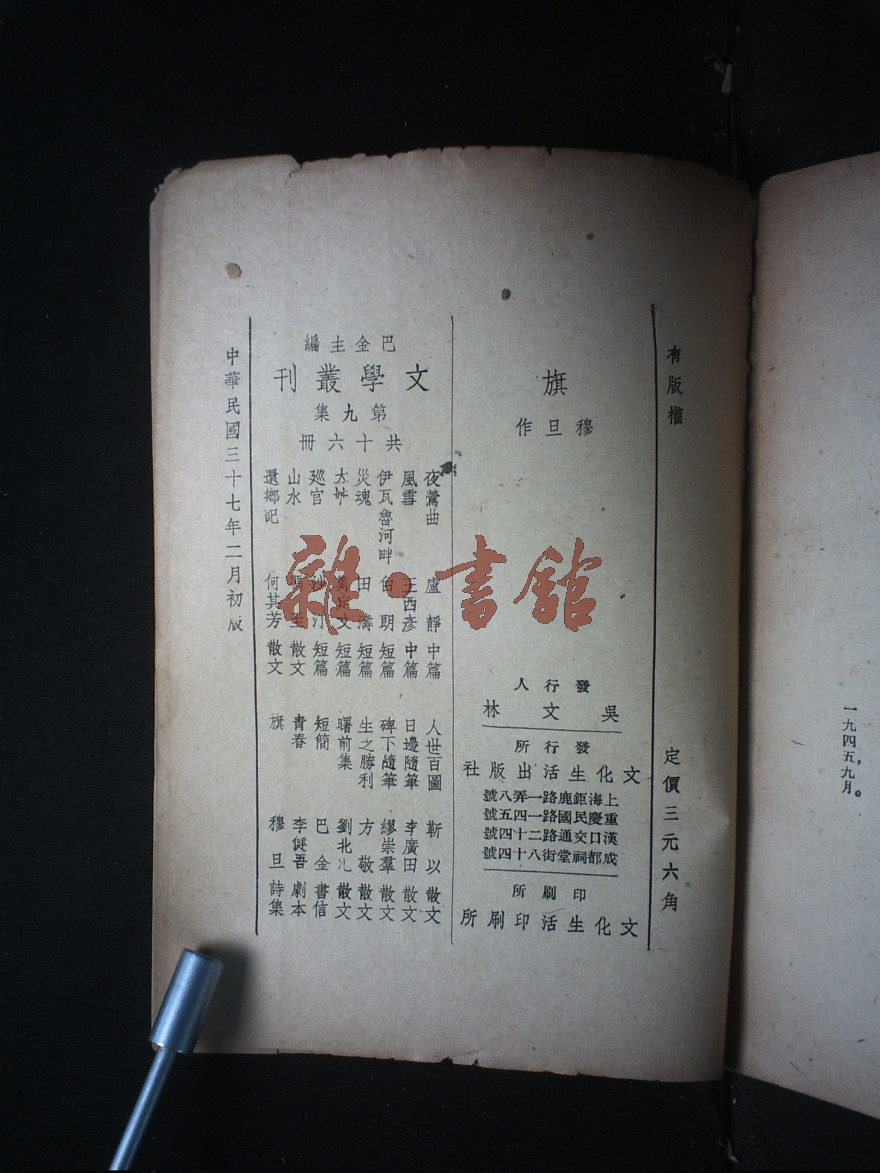 有版權
定價三元六角
旗
穆旦作
發行人
吳文林
發行所
文化生活出版社
上海鉅鹿路一弄八號
重慶民國路一四五號
漢口交通路二十四號
成都祠堂街八十四號
印刷所
文化生活印刷所
巴金主編
文學叢刊
第九集
共十六冊
夜鶯曲 盧靜 中篇
風雪 王西彥 中篇
伊瓦魯河畔 白朗 短篇
災魂 田濤 短篇
文 短篇
巡官 汀 短篇
山水 至 散文
還鄉記 何其芳 散文
人世百圖 靳以 散文
日邊隨筆 李廣田 散文
碑下隨筆 繆崇羣 散文
生之勝利 方敬 散文
曙前集 劉北汜 散文
短簡 巴金 書信
青春 李健吾 劇本
旗 穆旦 詩集
中華民國三十七年二月初版
一九四五,九月。
雜·書館